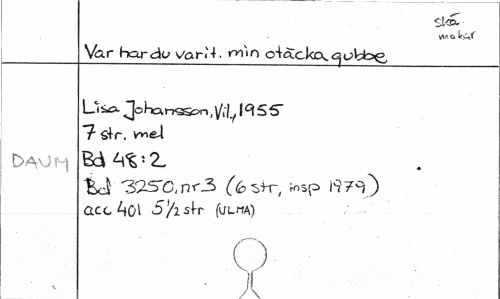 skä.
makar
Var har du varit. min otäcka gubbe
Lisa Johansson, Vil., 1955
7 str. mel
DAUM Bd 48:2
Bd 3250, nr 3 (6 str, insp 1979)
acc 401 5 1/2 str (ULMA)